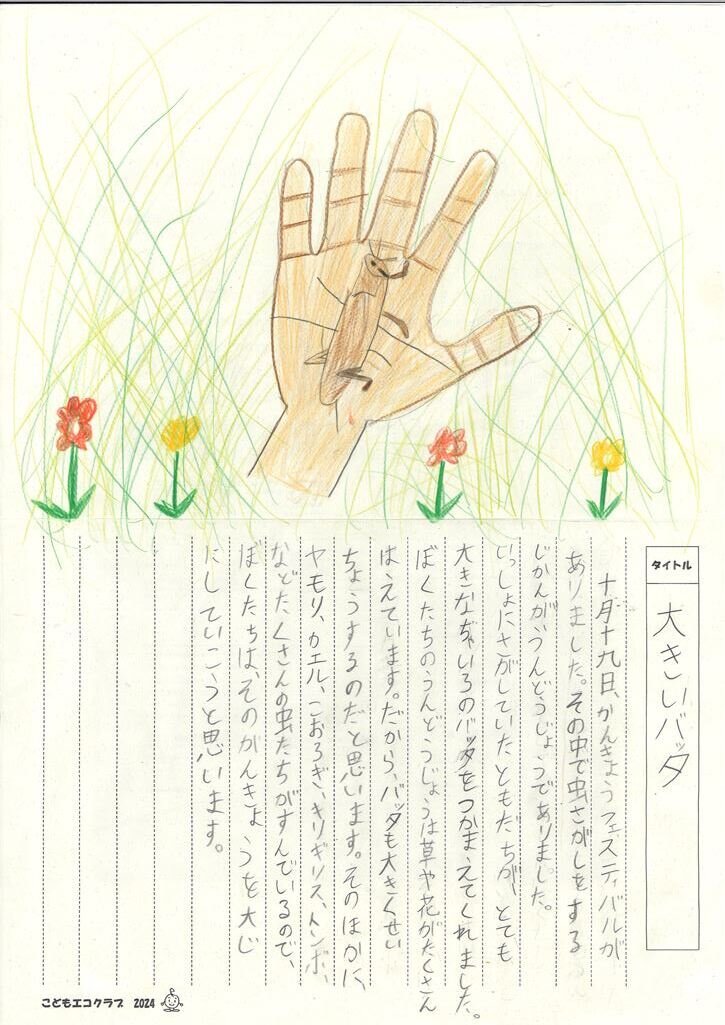 タイトル
大きいバッタ
十月十九日、かんきょうフェスティバルが
ありました。その中で虫さがしをする
じかんが、うんどうじょうでありました。
いっしょにさがしていたともだちが、とても
大きなちゃいろのバッタをつかまえてくれました。
ぼくたちのうんどうじょうは草や花がたくさん
はえています。だから、バッタも大きくせい
ちょうするのだと思います。そのほかに、
ヤモリ、カエル、こおろぎ、キリギリス、トンボ、
などたくさんの虫たちがすんでいるので、
ぼくたちは、そのかんきょうを大じ
にしていこうと思います。
こどもエコクラブ 2024